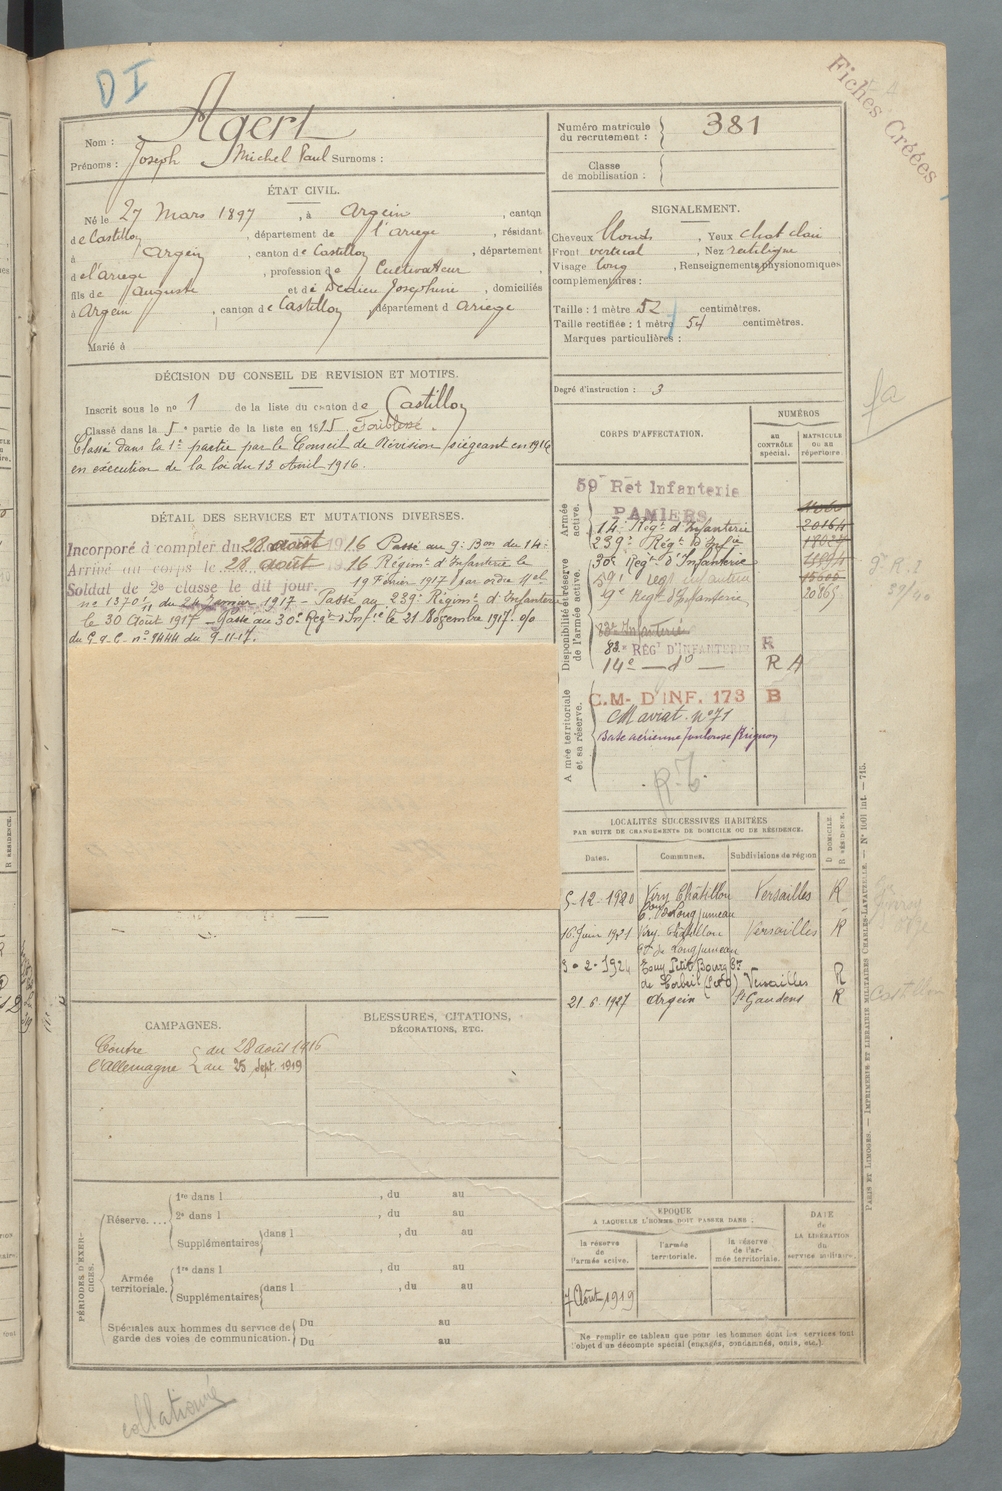 D I
Fiches Créées
Nom : Agert
Prénoms : Joseph Michel Paul Surnoms :
Numéro matricule du recrutement : 381
Classe de mobilisation :
ÉTAT CIVIL.
Né le 27 Mars 1897, à Argein, canton
de Castillon, département de l'ariège, résidant
à Argein, canton de Castillon, département
de l'ariege, profession de Cultivateur,
fils de Auguste et de Josephine, domiciliés
à Argein, canton de Castillon, département d Ariege
Marié à
SIGNALEMENT.
Cheveux blonds, Yeux chat clair
Front vertical, Nez rectiligne
Visage long, Renseignements physionomiques
complémentaires :
Taille : 1 mètre 52 centimètres.
Taille rectifiée : 1 mètre 54 centimètres.
Marques particulières :
Degré d'instruction : 3
DÉCISION DU CONSEIL DE REVISION ET MOTIFS.
Inscrit sous le n° 1 de la liste du canton de Castillon
Classé dans la 5e partie de la liste en 1915. Faiblesse.
Classé dans la 1e partie par le Conseil de Révision siégeant en 1916
en exécution de la loi du 13 Avril 1916.
DÉTAIL DES SERVICES ET MUTATIONS DIVERSES.
Incorporé à compter du 28 août 1916 Passé au 9e Bon du 14e
Arrivé au corps le 28 août 1916 Régimt d'Infanterie le
Soldat de 2e classe le dit jour. 19 Février 1917 par ordre
n° 1370/11 du Janvier 1917 - Passé au 239e Régimt d'Infanterie
le 30 Août 1917 - Passé au 30e Regt d'Infie le 21 Novembre 1917. o/o
du G.Q.G. n° 9444 du 9-11-17.
CORPS D'AFFECTATION.
NUMÉROS
AU CONTRÔLE spécial.
MATRICULE OU AU répertoire.
Armée active.
59e Rét Infanterie
PAMIERS
14e Regt d'Infanterie 20164
239e Régt d'Infie
30e Regt d'Infanterie
Disponibilité et réserve de l'armée active.
59e regt infanterie 15600
9e Regt d'Infanterie 20865
83e REGt D'INFANTERIE R
14e — do — R A
Armée territoriale et sa réserve.
C.M. D'INF. 173 B
CM aviat. n° 71
Base aérienne Toulouse
R.T.
LOCALITÉS SUCCESSIVES HABITÉES
PAR SUITE DE CHANGEMENTS DE DOMICILE OU DE RÉSIDENCE.
Dates. Communes. Subdivisions de région D DOMICILE. R RÉSIDENCE.
5-12-1920 Viry Châtillon Con de Longjumeau Versailles R
16 Juin 1921 Viry-Châtillon Con de Longjumeau Versailles R
3-2-1924 Petit Bourg de Corbeil (S et O) Versailles R
21-6-1927 Argein St Gaudens R
Castillon
CAMPAGNES.
Contre l'Allemagne { du 28 août 1916
au 25 Sept. 1919
BLESSURES, CITATIONS,
DÉCORATIONS, ETC.
PÉRIODES D'EXERCICES.
Réserve.... 1re dans l , du au
2e dans l , du au
Supplémentaires dans l , du au
Armée territoriale. 1re dans l , du au
Supplémentaires dans l , du au
Spéciales aux hommes du service de
garde des voies de communication. Du au
Du au
ÉPOQUE
A LAQUELLE L'HOMME DOIT PASSER DANS :
la réserve de l'armée active.
l'armée territoriale.
la réserve de l'armée territoriale.
DATE de LA LIBÉRATION du service militaire.
7 Août 1919
Ne remplir ce tableau que pour les hommes dont les services font
l'objet d'un décompte spécial (engagés, condamnés, omis, etc.)
PARIS ET LIMOGES. — IMPRIMERIE ET LIBRAIRIE MILITAIRES CHARLES-LAVAUZELLE. — N° 1601 int. — 715.
collationné